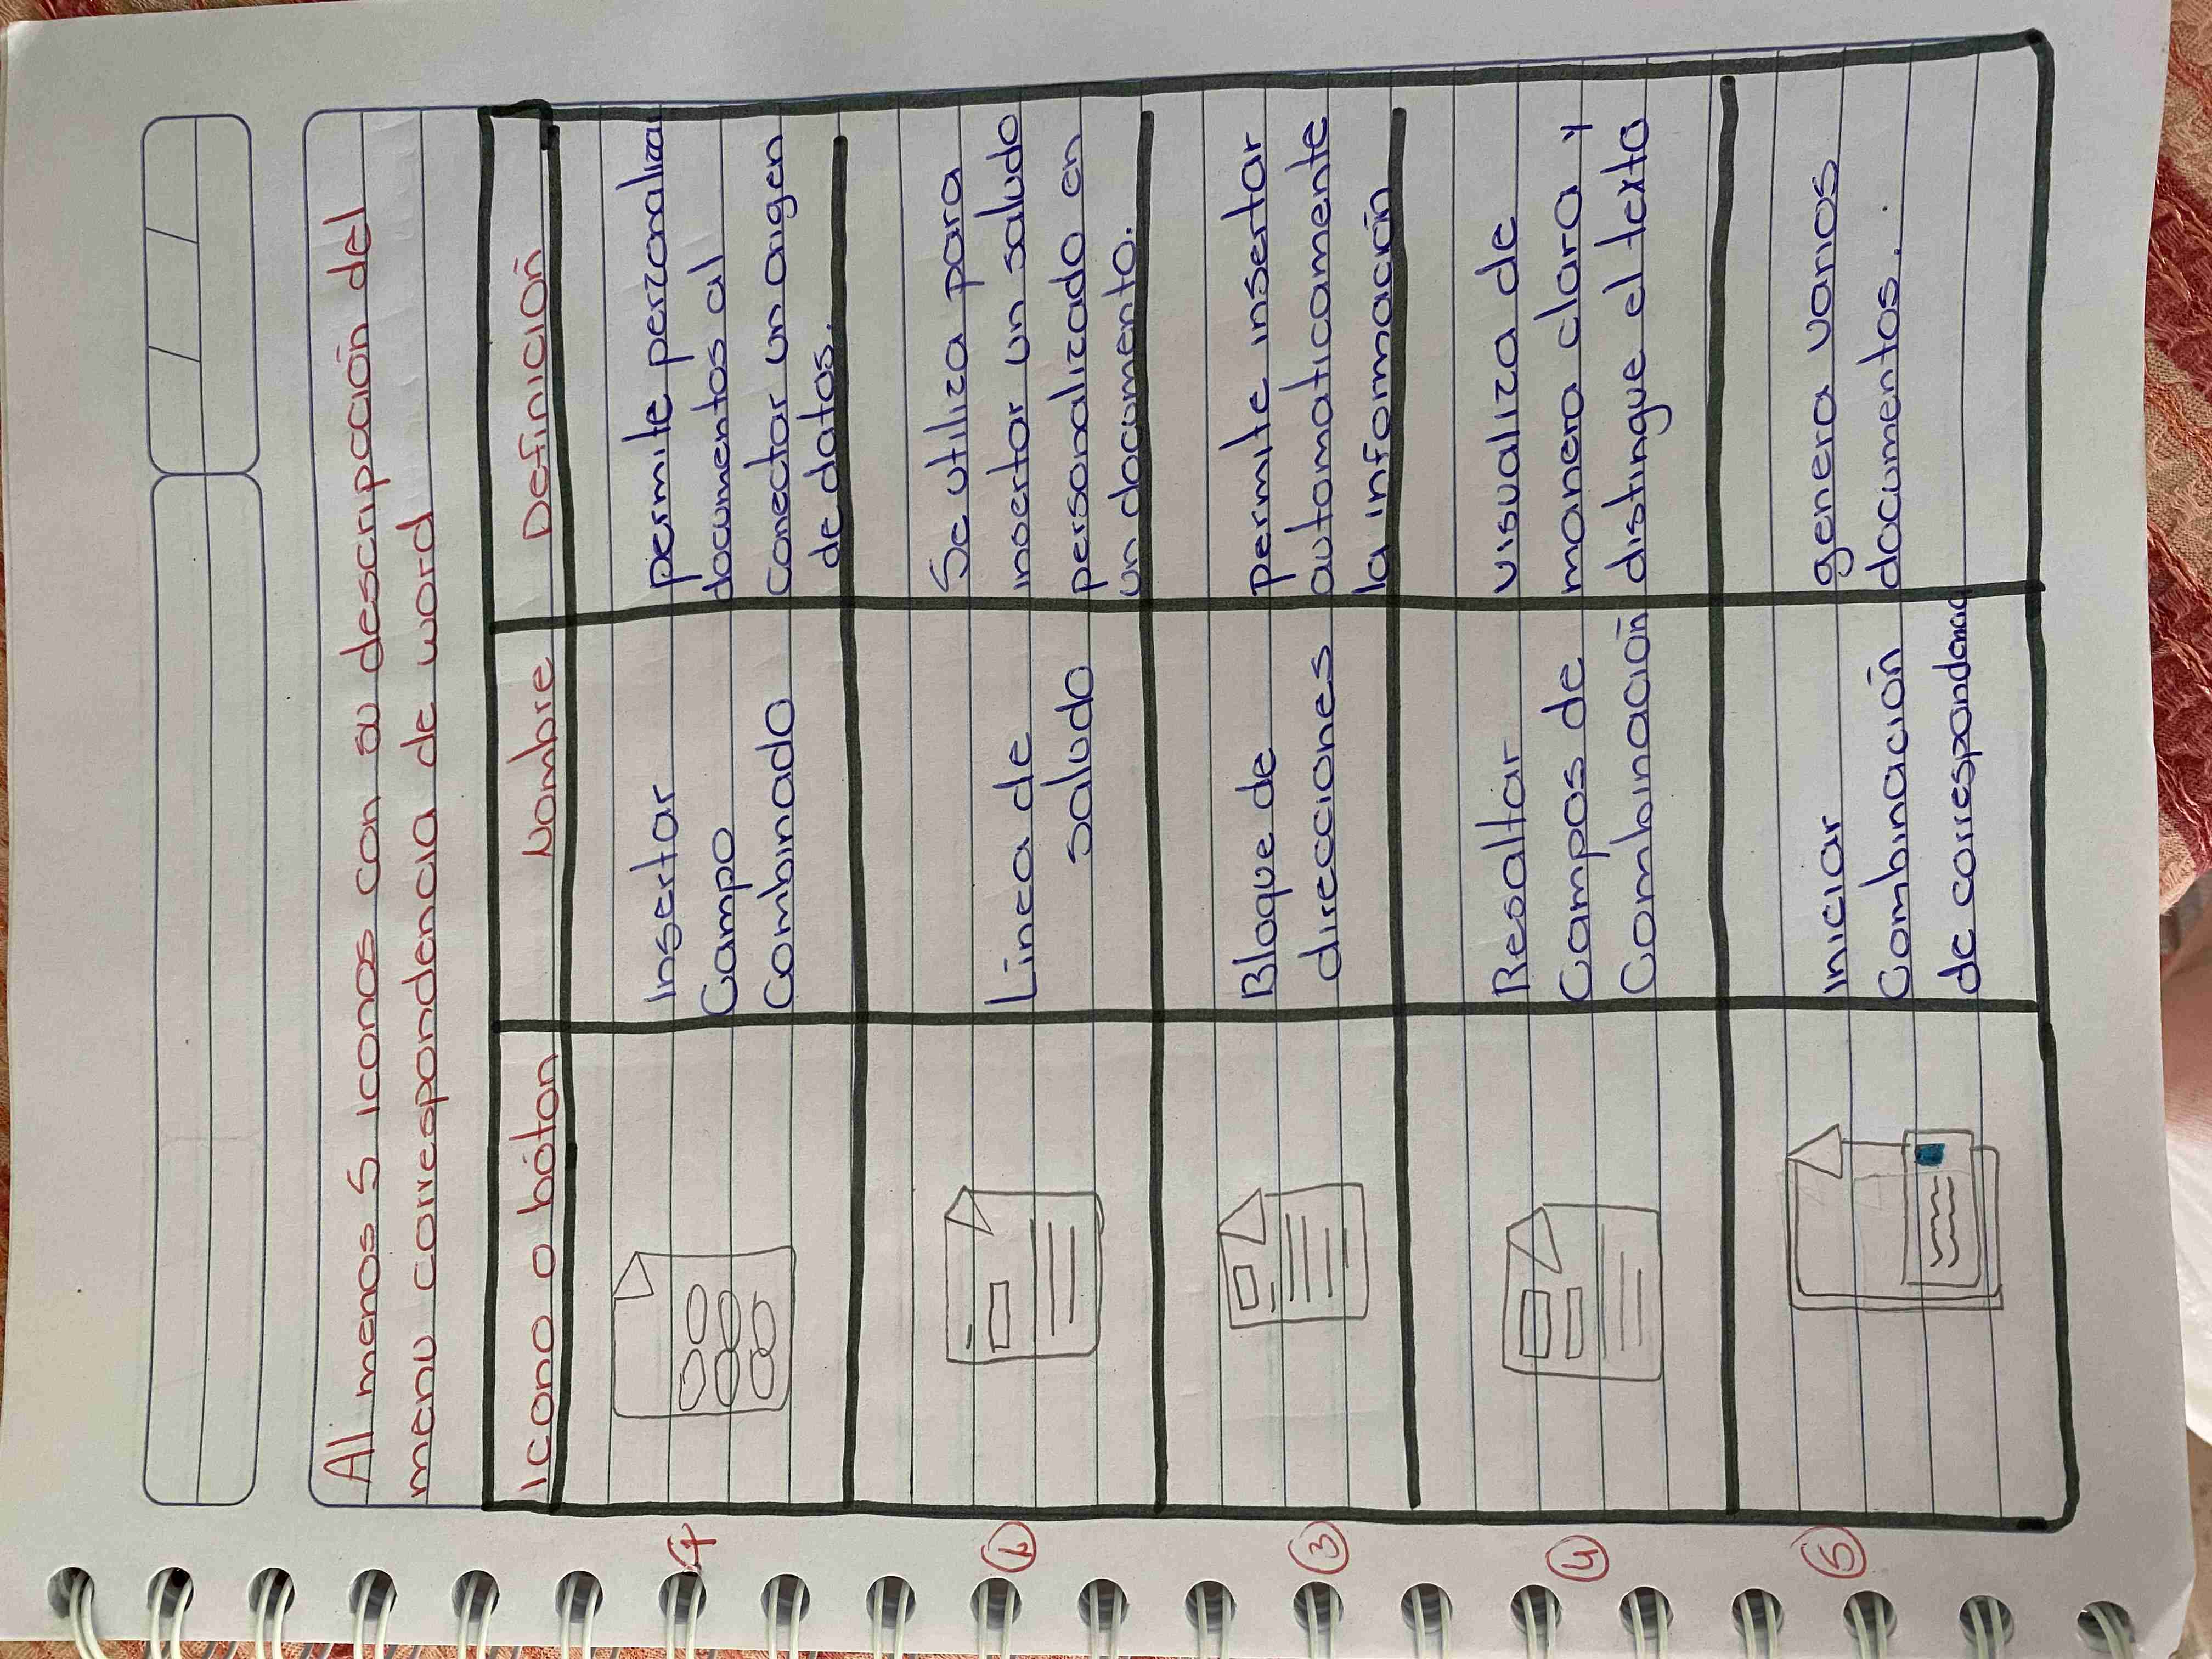 Al menos 5 iconos con su descripción del
menu correspondencia de word
Icono o bóton Nombre Definición
1
Insertar
Campo
Combinado
permite perzonalizar
documentos al
Conectar un origen
de datos.
2
Linea de
saludo
Se utiliza para
insertar un saludo
personalizado en
un documento.
3
Bloque de
direcciones
permite insertar
automaticamente
la información
4
Resaltar
Campos de
Combinación
visualiza de
manera clara y
distingue el texto
5
Iniciar
Combinación
de correspondencia
genera varios
documentos.